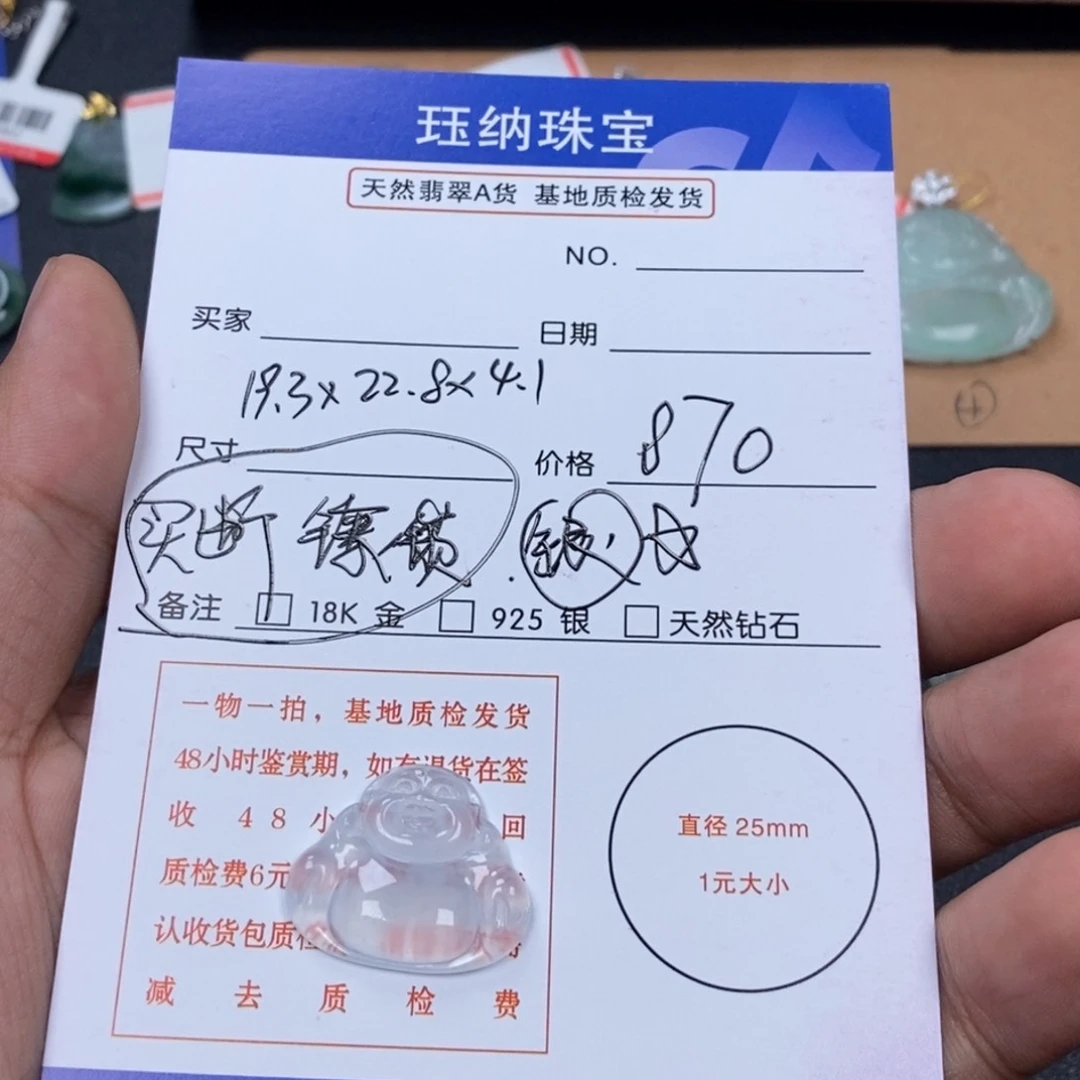 珏纳珠宝
天然翡翠A货 基地质检发货
NO.
买家 日期
19.3x22.8x4.1
尺寸 价格 870
买断 镶 银
备注 18K 金 925 银 天然钻石
一物一拍，基地质检发货
48小时鉴赏期，如有退货在签
收 48小 回
质检费6元
认收货包质检
减去质检费
直径 25mm
1元大小